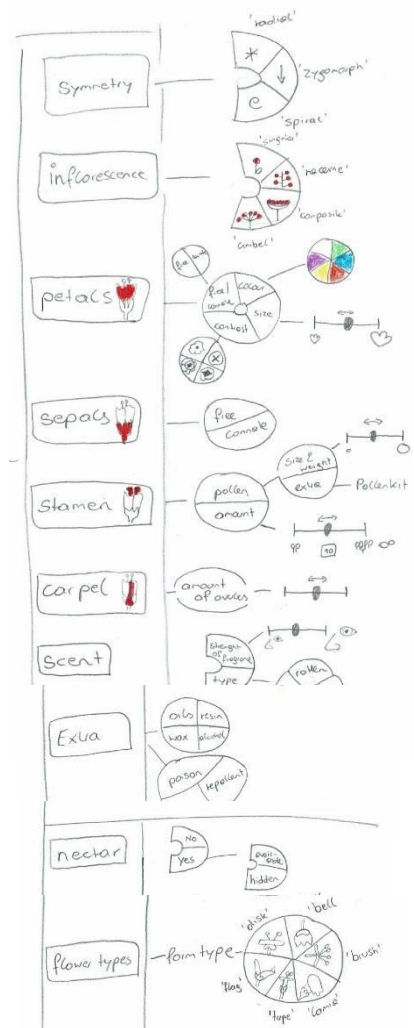 'radial'
Symmetry
'zygomorph'
'spiral'
'singular'
inflorescence
'raceme'
'composite'
'umbel'
petals
free
free/
connate
colour
size
contrast
sepals
free
connate
Stamen
pollen
amount
size &
weight
extra
Pollenkit
10
∞
carpel
amount
of ovules
scent
strenght
of fragrance
type
rotten
Extra
oils
resin
wax
alcohol
poison
repellent
nectar
No
yes
avail-
able
hidden
flower types
form type
'disk'
'bell'
'brush'
'flag'
'tupe'